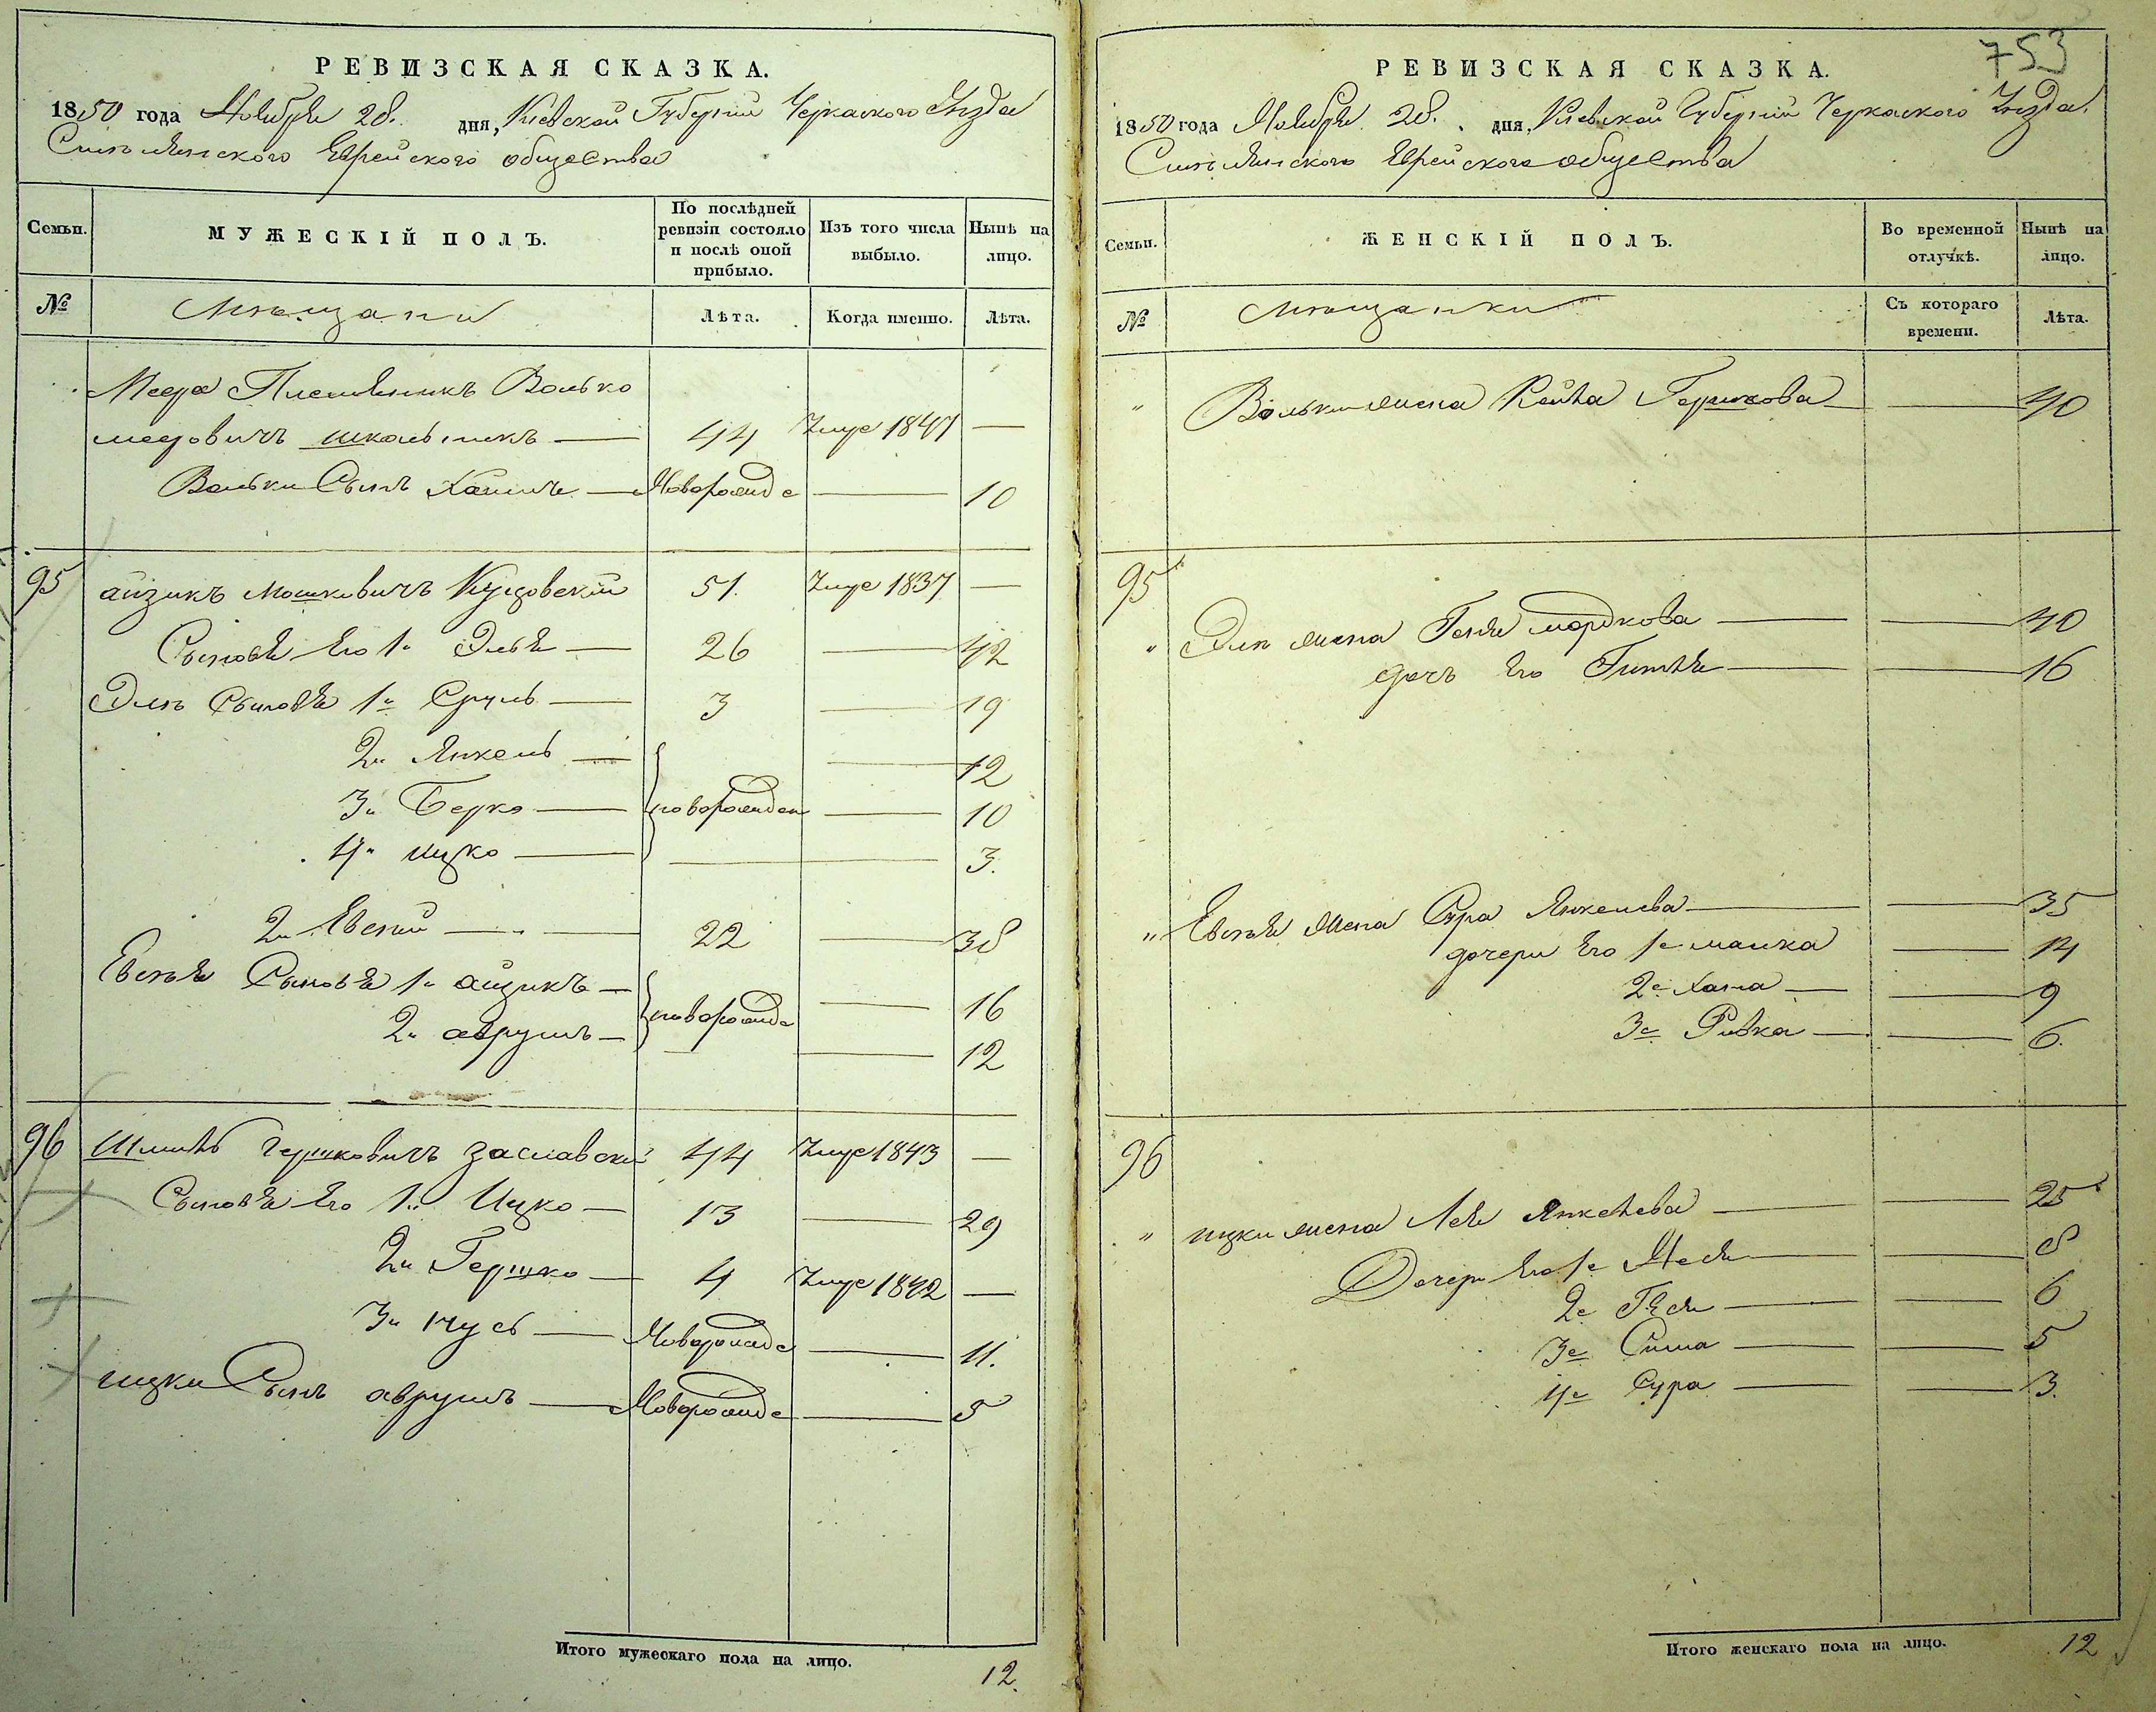 РЕВИЗСКАЯ СКАЗКА.
1850 года Ноября 28. дня, Киевской Губернии Черкаского Уезда
Смелянского Еврейского общества
Семьи.
МУЖЕСКІЙ ПОЛЪ.
По послѣдней ревизіи состояло и послѣ оной прибыло.
Изъ того числа выбыло.
Нынѣ на лицо.
№
Мещани
Лѣта.
Когда именно.
Лѣта.
Меера Племянникъ Волько
мееровичъ школьникъ — 44 Умре 1847 —
Вольки Сынъ Хаимъ — Новорожде — 10
95 айзикъ Мошковичъ 51. Умре 1837 —
Сыновя Его 1й Элья — 26 — 42
Эли Сыновя 1й Сруль — 3 — 19
2й Янкель — — 12
3й Берко — новорожден — 10
4й ицко — — 3.
2й Евсей — 22 — 38
Евсея Сыновя 1й айзикъ — новорожде — 16
2й аврумъ — — 12
96 Гершковичъ заславский 44 Умре 1843 —
Сыновя Его 1й Ицко — 13 — 29
2й Гершко — 4 Умре 1842 —
3й нусь — Новорожде — 11.
ицки Сынъ аврумъ — Новорожде — 5
Итого мужескаго пола на лицо. 12.
753
РЕВИЗСКАЯ СКАЗКА.
1850 года Ноября 28. дня, Киевской Губернии Черкаского Уезда.
Смелянского Еврейского общества
Семьи.
ЖЕНСКІЙ ПОЛЪ.
Во временной отлучкѣ.
Нынѣ на лицо.
№
Мещанки
Съ котораго времени.
Лѣта.
" Вольки жена Рейза Гершкова — — 40
95
" Эли жена Геня мордкова — — 40
дочь Его Гитля — — 16
" Евсея жена Сура Янкелева — — 35
дочери Его 1я малка — 14
2я Хана — — 9
3я Ривка — — 6.
96
" ицки жена Лея Янкелева — — 25
Дочери Его 1я — — 8
2я — — 6
3я Сима — — 5
4я Сура — — 3.
Итого женскаго пола на лицо. 12